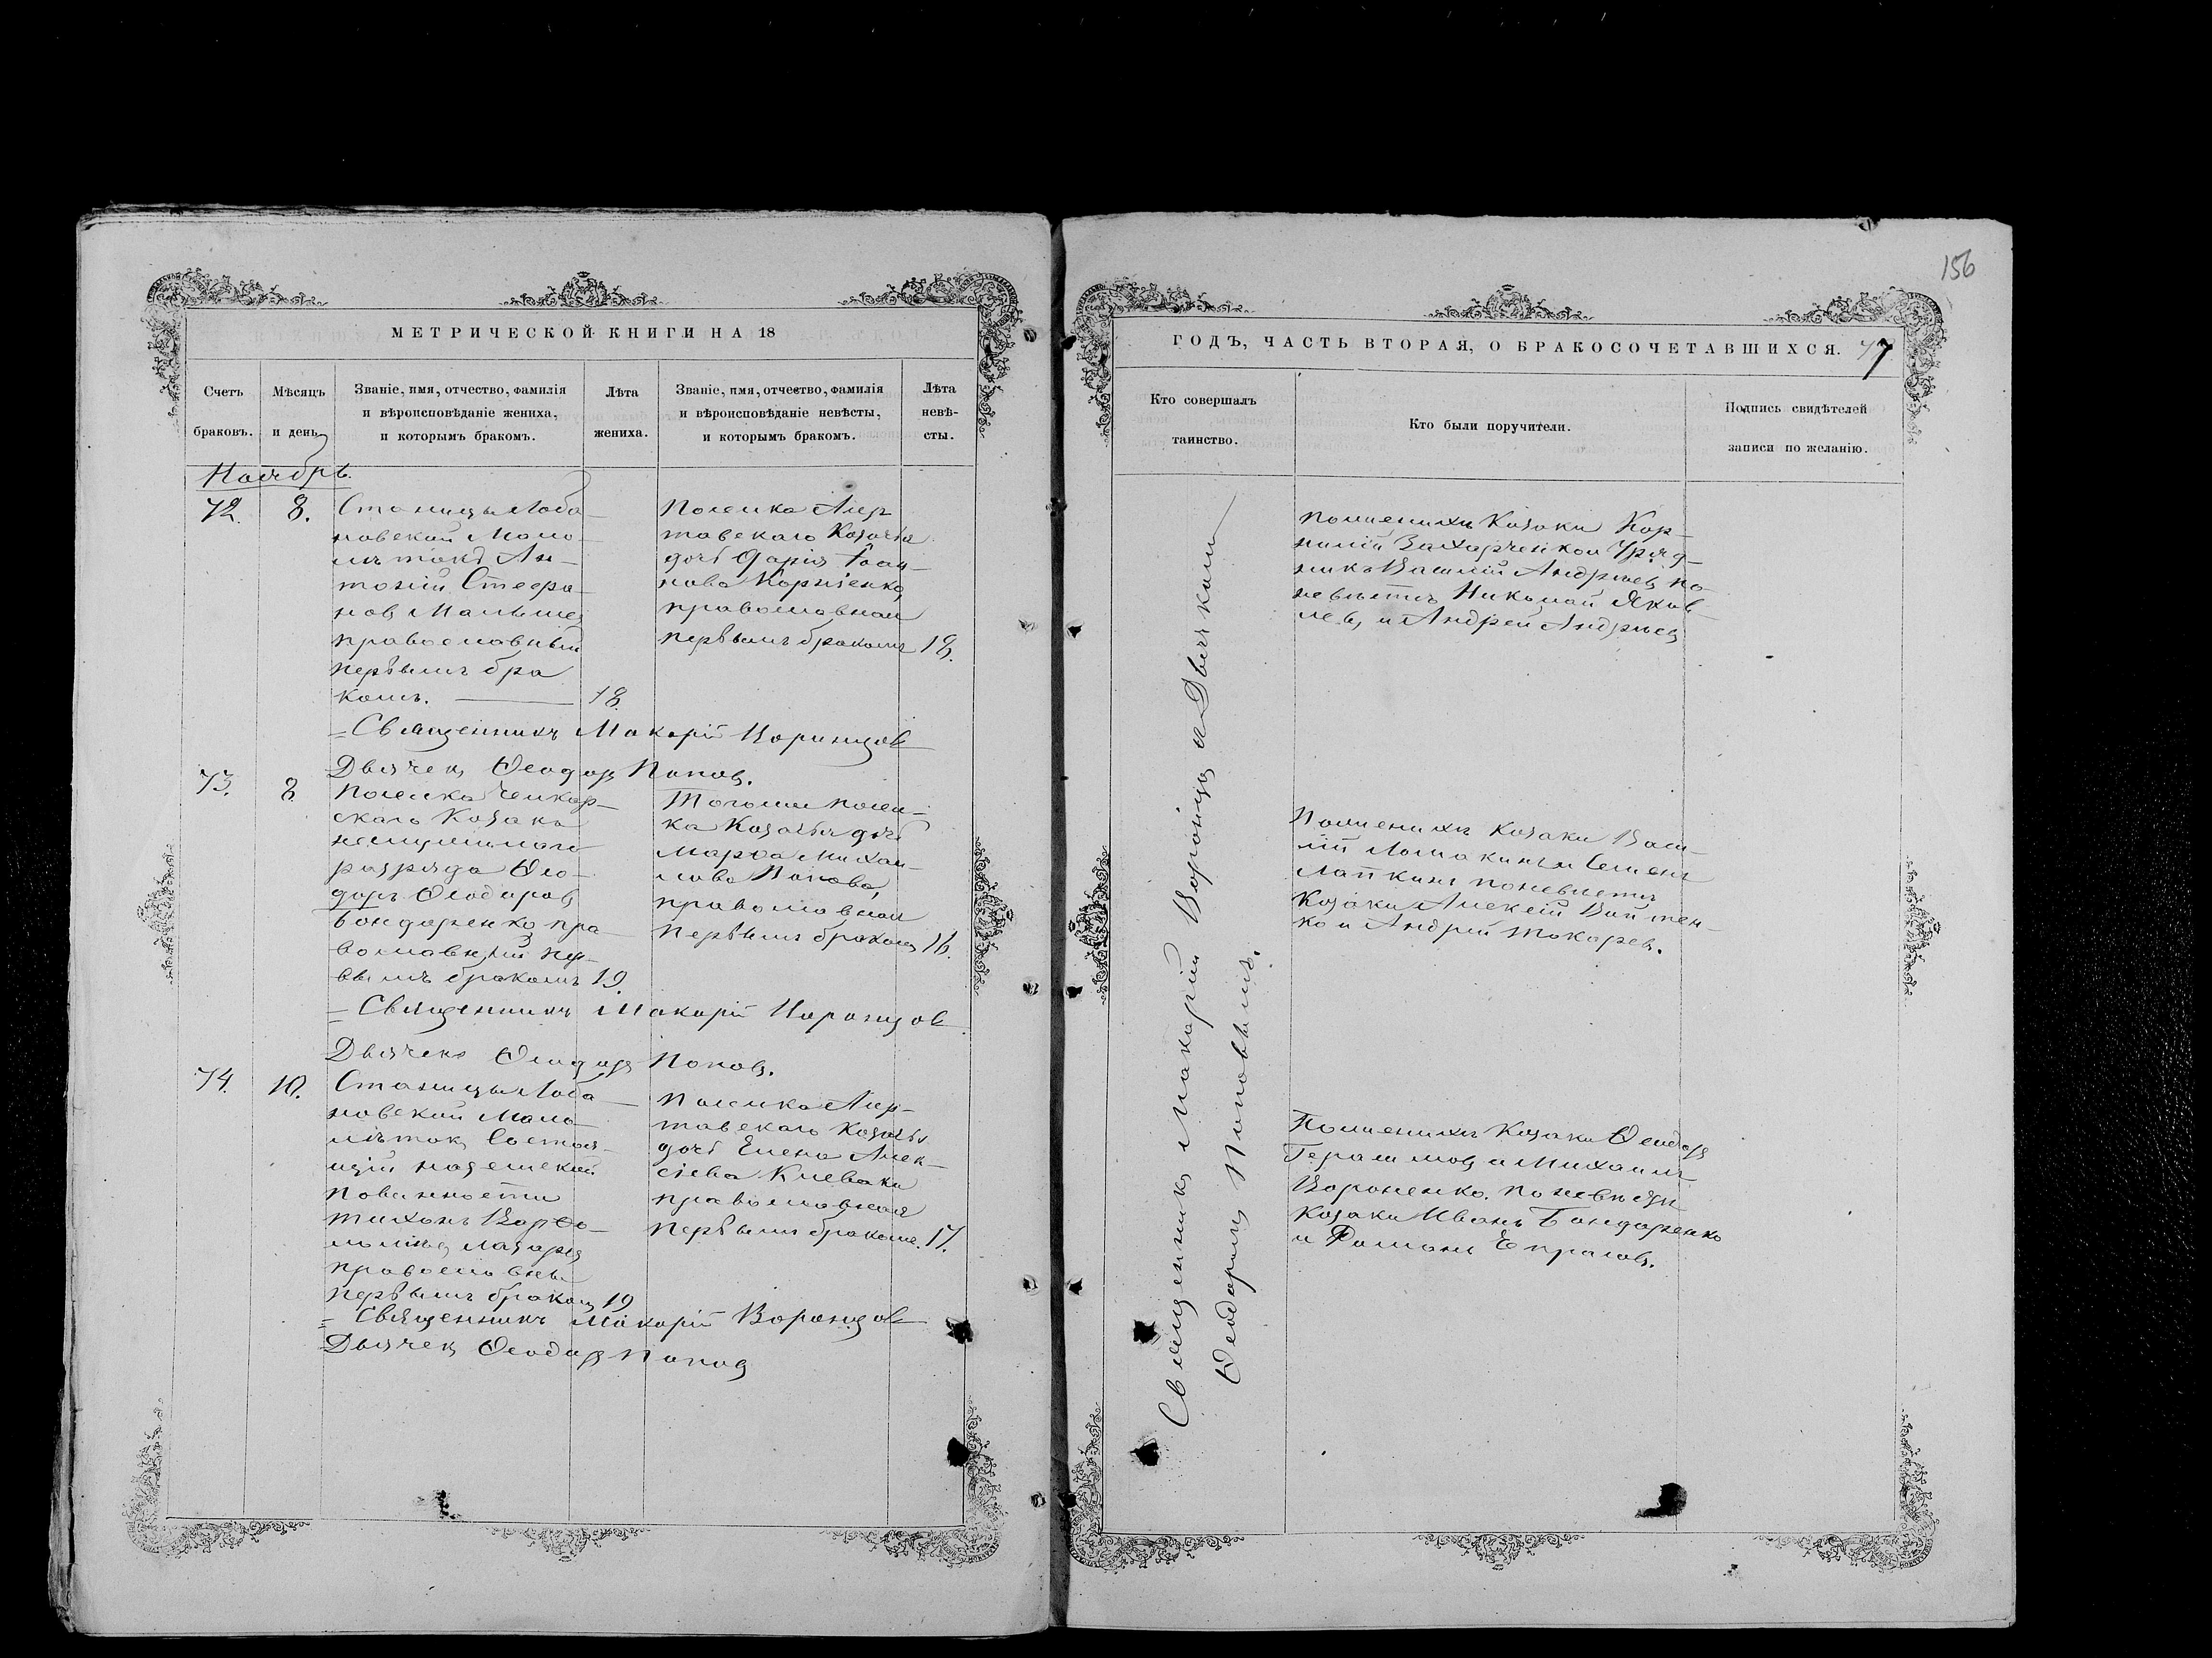 156
МЕТРИЧЕСКОЙ КНИГИ НА 18
Счетъ браковъ.
Мѣсяцъ и день
Званіе, имя, отчество, фамилія
и вѣроисповѣданіе жениха,
и которымъ бракомъ.
Лѣта жениха.
Званіе, имя, отчество, фамилія
и вѣроисповѣданіе невѣсты,
и которымъ бракомъ.
Лѣта невѣ-
сты.
Ноябрь.
72.
8.
Станицы Лоба-
новской Мало-
лѣтокъ Ан-
тоній Стефа-
новъ Малышев
православный
первымъ бра
комъ.
18
Поселка Аир
тавскаго Козачья
дочь Дарія Іоан-
нова Корніенко,
православная
первымъ бракомъ
18.
Священникъ Макарій Воронцов
Дьячекъ Ѳеодоръ Поповъ.
73.
8
Поселка Челкар-
скаго Козакъ
неслужилаго
разряда Ѳео-
доръ Ѳеодоровъ
Бондаренко пра-
вославный пер-
вымъ бракомъ
19.
Тогоже посел-
ка Козачья дочь
Марѳа Михаи-
лова Попова,
православная
первымъ бракомъ
16.
Священникъ Макарій Воронцов
Дьячекъ Ѳеодоръ Поповъ.
74.
10.
Станицы Лоба-
новской Мало-
лѣтокъ Состоя-
щій на земской
повинности
Тихонъ Варѳо-
ломѣевъ Лазарев
православны
первымъ бракомъ
19
Поселка Аир-
тавскаго Козачья
дочь Елена Алек-
сіева Клевака
православная
первымъ бракомъ.
17.
Священникъ Макарій Воронцов
Дьячекъ Ѳеодоръ Поповъ
ГОДЪ, ЧАСТЬ ВТОРАЯ, О БРАКОСОЧЕТАВШИХСЯ.
77
Кто совершалъ
таинство.
Кто были поручители.
Подпись свидѣтелей
записи по желанію.
Священникъ Макарій Воронцов и Дьячкомъ
Ѳеодоромъ Поповымъ.
По женихѣ Козаки Кор-
нилій Захарченко и Уряд-
никъ Василій Андреевъ по
невѣстѣ Николай Яков-
левъ, и Андрей Андреев
По женихѣ Козаки Васи-
лій Ломакинъ и Семенъ
Лапкинъ по невѣстѣ
Козаки Алексій Войтен-
ко и Андрей Токаревъ.
По женихѣ Козаки Ѳеодоръ
Герасимовъ и Михаилъ
Вороненко. по невѣстѣ
Козаки Иванъ Бондаренко
и Романъ